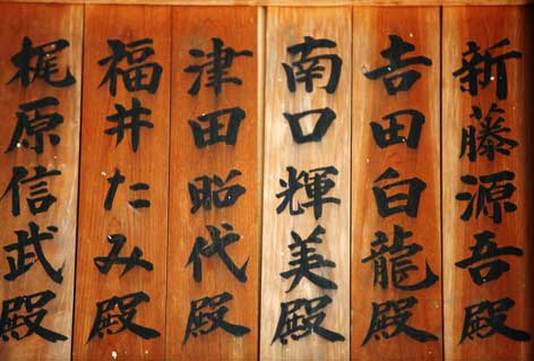 新藤源吾殿
𠮷田白龍殿
南口輝美殿
津田昭代殿
福井たみ殿
梶原信武殿